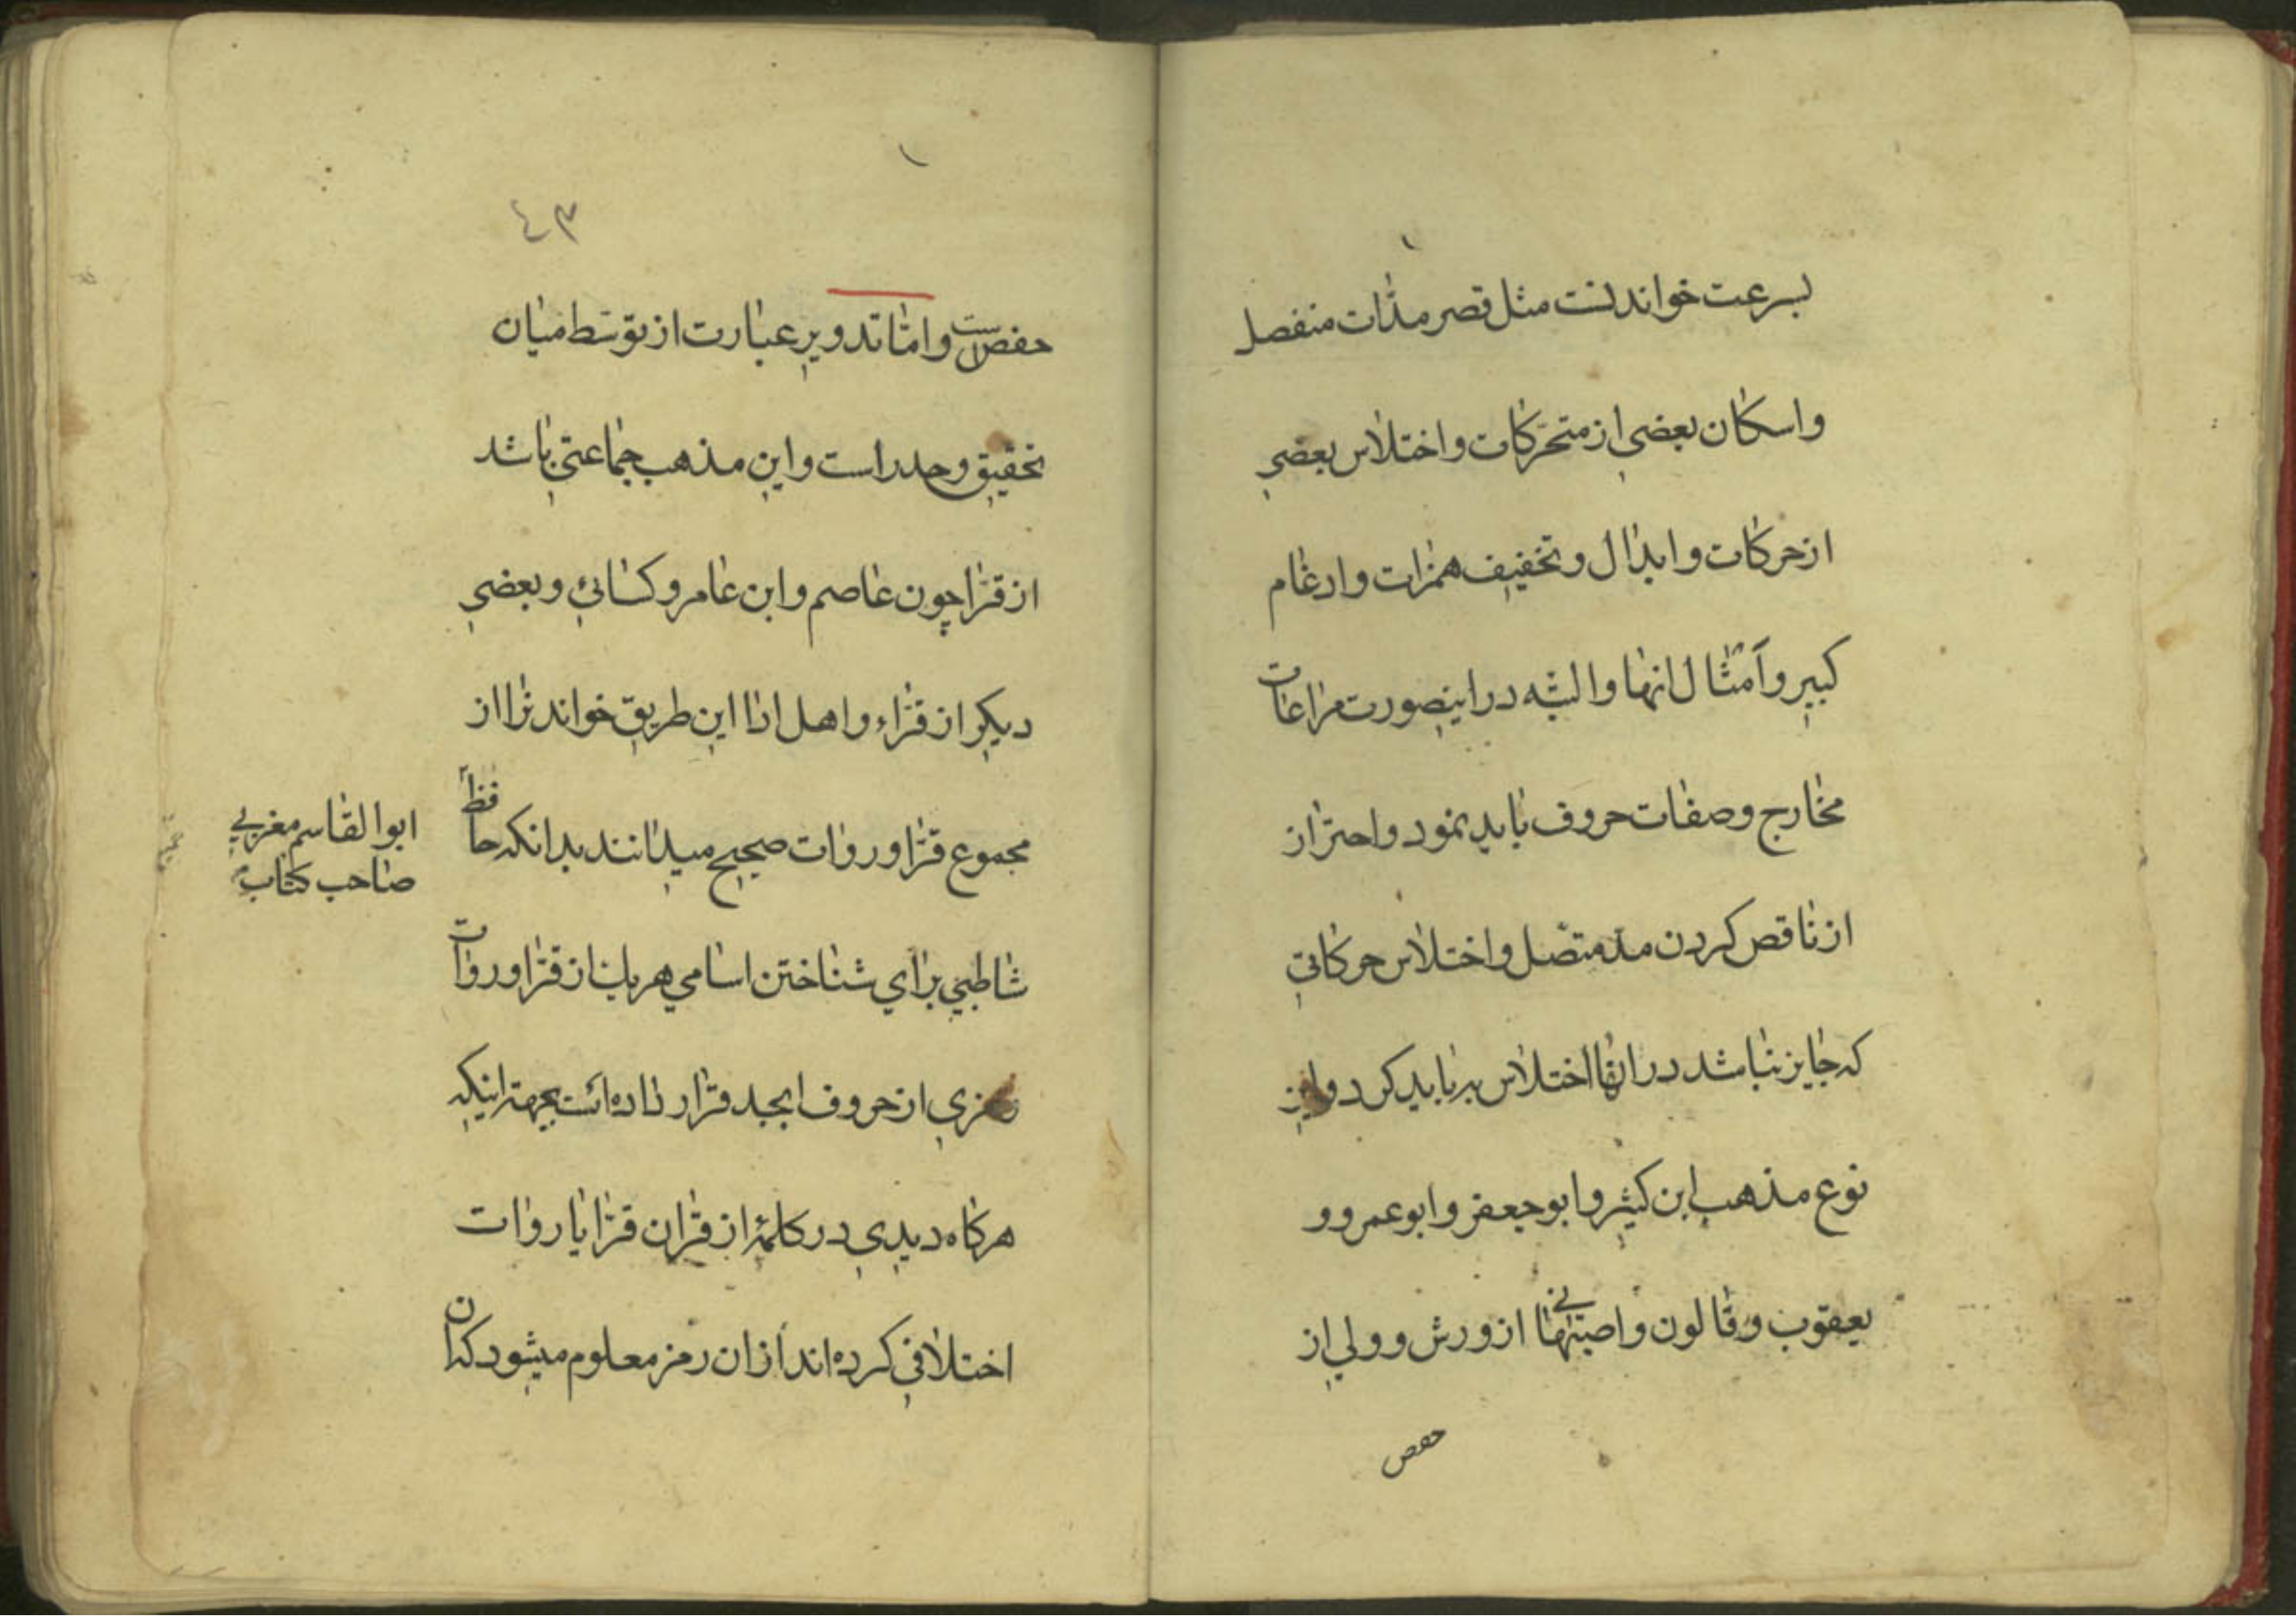 بسرعت خواندنست مثل قصر مدّات منفصل
واسکان بعضی از متحرّکات و اختلاس بعضی
از حرکات و ابدال و تخفیف همزات و ادغام
کبیر و اَمثال انها و البتّه در اینصورت مراعات
مخارج و صفات حروف باید نمود و احتراز
از ناقص کردن مدّ متّصل و اختلاس حرکاتی
که جایز نباشد در انها اختلاس
باید کرد و این
نوع مذهب ابن کثیر و ابو جعفر و ابو عمرو و
یعقوب و قالون و اصبهانی از ورش و ولی از
حفص
٤٣
حفص است و امّا تدویر عبارت از توسّط میان
تحقیق و حدر است و این مذهب جماعتی باشد
از قرّا چون عاصم و ابن عامر و کسائی و بعضی
دیکر از قرّاء و اهل ادا این طریق خواندن را از
مجموع قرّا و روات صحیح میدانند بدانکه حافظ
ابوالقاسم مغربی
صاحب کتاب
شاطبی برای شناختن اسامی هر یک از قرّا و روات
رمزی از حروف ابجد قرار داده است بجهة اینکه
هرکاه دیدی در کلمۀ از قران قرّا یا روات
اختلافی کرده اند از ان رمز معلوم میشود که ان